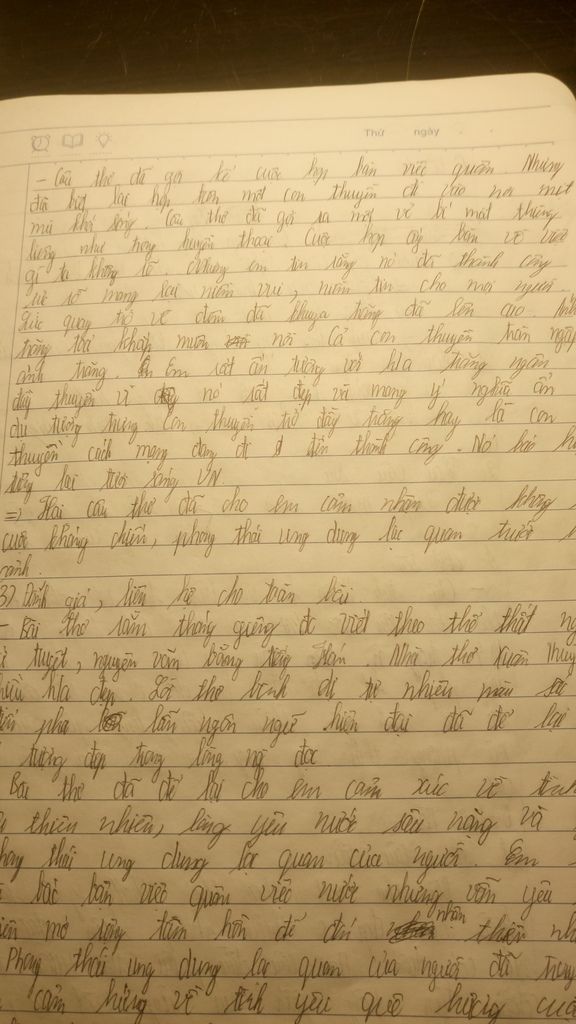 Thứ ngày
- Câu thơ đã gợi kể cuộc họp bàn việc quân. Những
đặc biệt lại họp trên một con thuyền đi vào nơi mịt
mù khói sóng. Câu thơ đã gợi ra một vẻ bí mật thiêng
liêng như trong huyền thoại. Cuộc họp ấy bàn về việc
gì ta không rõ. Nhưng em tin rằng nó đã thành công
rực rỡ mang lại niềm vui, niềm tin cho mọi người.
Lúc quay trở về đêm đã khuya trăng đã lên cao. Ánh
trăng toả khắp muôn nơi. Cả con thuyền tràn ngập
ánh trăng. Em rất ấn tượng với h/a trăng ngân
đầy thuyền vì nó rất đẹp và mang ý nghĩa ẩn
dụ tượng trưng con thuyền trở đầy trăng hay là con
thuyền cách mạng đang đi đến thành công. Nó báo
tương lai tươi sáng VN.
=> Hai câu thơ đã cho em cảm nhận được không
cuộc kháng chiến, phong thái ung dung lạc quan trước
cảnh.
3) Đánh giá, liên hệ cho toàn bài
- Bài thơ rằm tháng giêng đc viết theo thể thất
tứ tuyệt, nguyên văn bằng tiếng Hán. Nhà thơ Xuân Thuỷ
nhiều h/a đẹp. Lời thơ bình dị tự nhiên màu sắc
điển pha lẫn ngôn ngữ hiện đại đã để lại
tượng đẹp trong lòng ng đọc
Bài thơ đã để lại cho em cảm xúc về tình
thiên nhiên, lòng yêu nước sâu nặng và
thái ung dung lạc quan của người. Em
bác bàn việc quân việc nước nhưng vẫn yêu
mở rộng tâm hồn để đón nhận thiên
Phong thái ung dung lạc quan của người đã truyền
cảm hứng về tình yêu quê hương